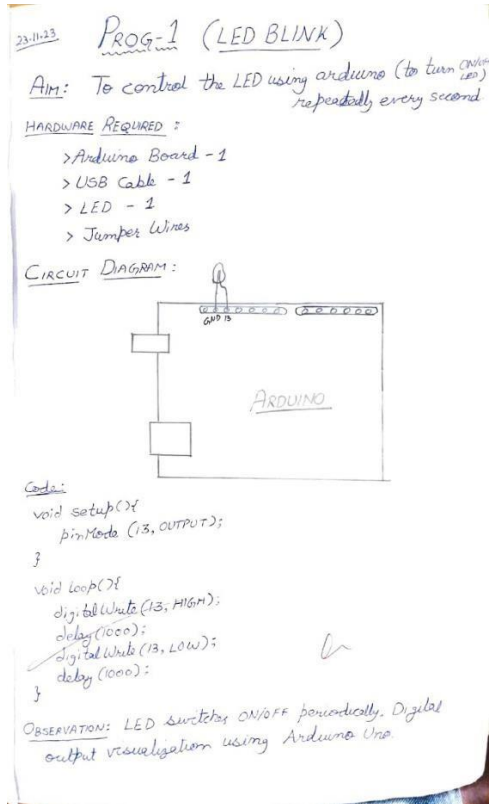 23.11.23
PROG-1 (LED BLINK)
AIM: To control the LED using arduino (to turn ON/OFF LED)
repeatedly every second
HARDWARE REQUIRED :
>Arduino Board - 1
> USB Cable - 1
> LED - 1
> Jumper Wires
CIRCUIT DIAGRAM:
GND 13
ARDUINO
Code:
void setup(){
pinMode (13, OUTPUT);
}
void loop(){
digitalWrite (13, HIGH);
delay (1000);
digitalWrite (13, LOW);
delay (1000);
}
OBSERVATION: LED switches ON/OFF periodically. Digital
output visualization using Arduino Uno.